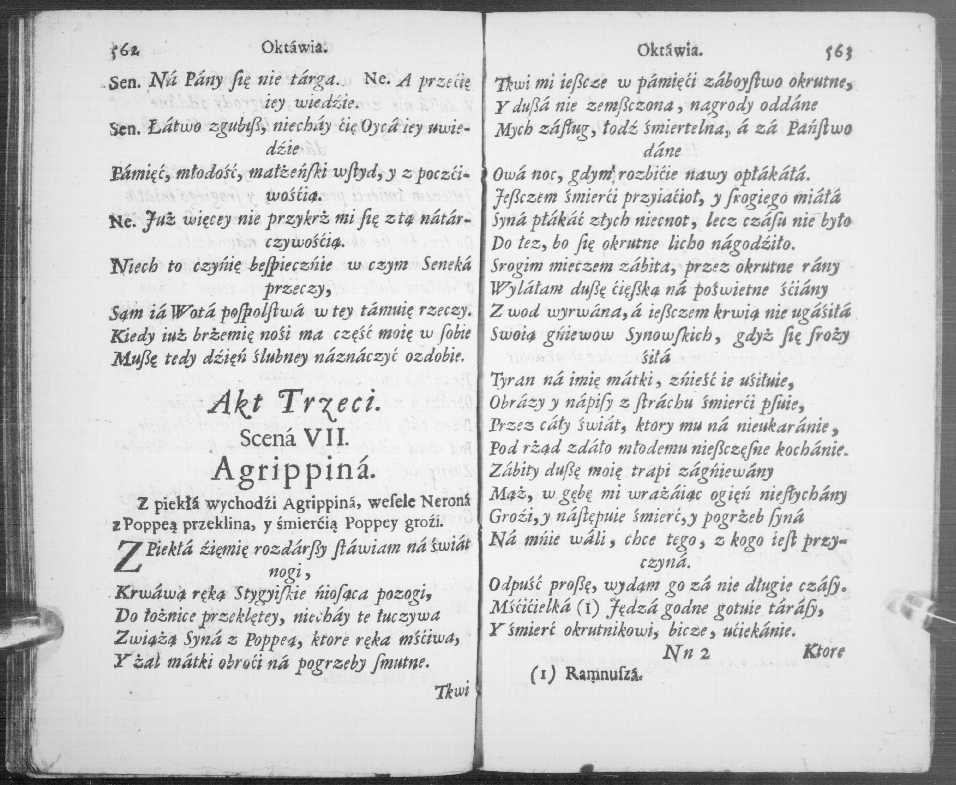 562 Oktáwia.
Sen. Ná Pány ſię nie tárga. Ne. A przećię
iey wiedźie.
Sen. Łátwo zgubiß, niecháy ćię Oycá iey uwie-
dźie
Pámięć, młodość, małżeńſki wſtyd, y z poczći-
wośćią.
Ne. Już więcey nie przykrż mi ſię z tą nátár-
czywośćią.
Niech to czyńię beſpieczńie w czym Seneká
przeczy,
Sąm iá Wotá poſpolſtwá w tey támuię rzeczy.
Kiedy iuż brżemię nośi ma część moię w ſobie
Mußę tedy dźięń ślubney náznáczyć ozdobie.
Akt Trzeci.
Scená VII.
Agrippiná.
Z piekłá wychodźi Agrippiná, weſele Neroná
z Poppeą przeklina, y śmierćią Poppey groźi.
Z Piekłá źięmię rozdárſſy ſtáwiam ná świát
nogi,
Krwáwą ręką Stygyiſkie ńioſąca pozogi,
Do łożnice przeklętey, niecháy te łuczywa
Zwiążą Syná z Poppeą, ktore ręka mśćiwa,
Y żal mátki obroći ná pogrzeby ſmutne.
Tkwi
Oktáwia. 563
Tkwi mi ießcze w pámięći záboyſtwo okrutne,
Y dußá nie zemßczona, nagrody oddáne
Mych záſług, łodź śmiertelna, á zá Páńſtwo
dáne
Owá noc, gdym rozbićie nawy opłákáłá.
Jeßczem śmierći przyiaćioł, y ſrogiego miáłá
Syná płákáć złych niecnot, lecz czáſu nie było
Do łez, bo ſię okrutne licho nágodźiło.
Srogim mieczem zábita, przez okrutne rány
Wyláłam dußę ćięßką ná poświetne śćiány
Z wod wyrwána, á ießczem krwią nie ugáśiłá
Swoią gńiewow Synowſkich, gdyż ſię ſroży
śiłá
Tyran ná imię mátki, zńieść ie uśiłuie,
Obrázy y nápiſy z ſtráchu śmierći pſuie,
Przez cáły świát, ktory mu ná nieukaránie,
Pod rżąd zdáło młodemu nießczęſne kochánie.
Zábity dußę moię trapi zágńiewány
Mąż, w gębę mi wrażáiąc ogięń nieſłychány
Groźi, y náſtępuie śmierć, y pogrżeb ſyná
Ná mńie wáli, chce tego, z kogo ieſt przy-
czyná.
Odpuść proßę, wydąm go zá nie długie czáſy.
Mśćićielká (1) Jędzá godne gotuie táráſſy,
Y śmierć okrutnikowi, bicze, ućiekánie.
Nn 2 Ktore
(1) Ramnuſzá.